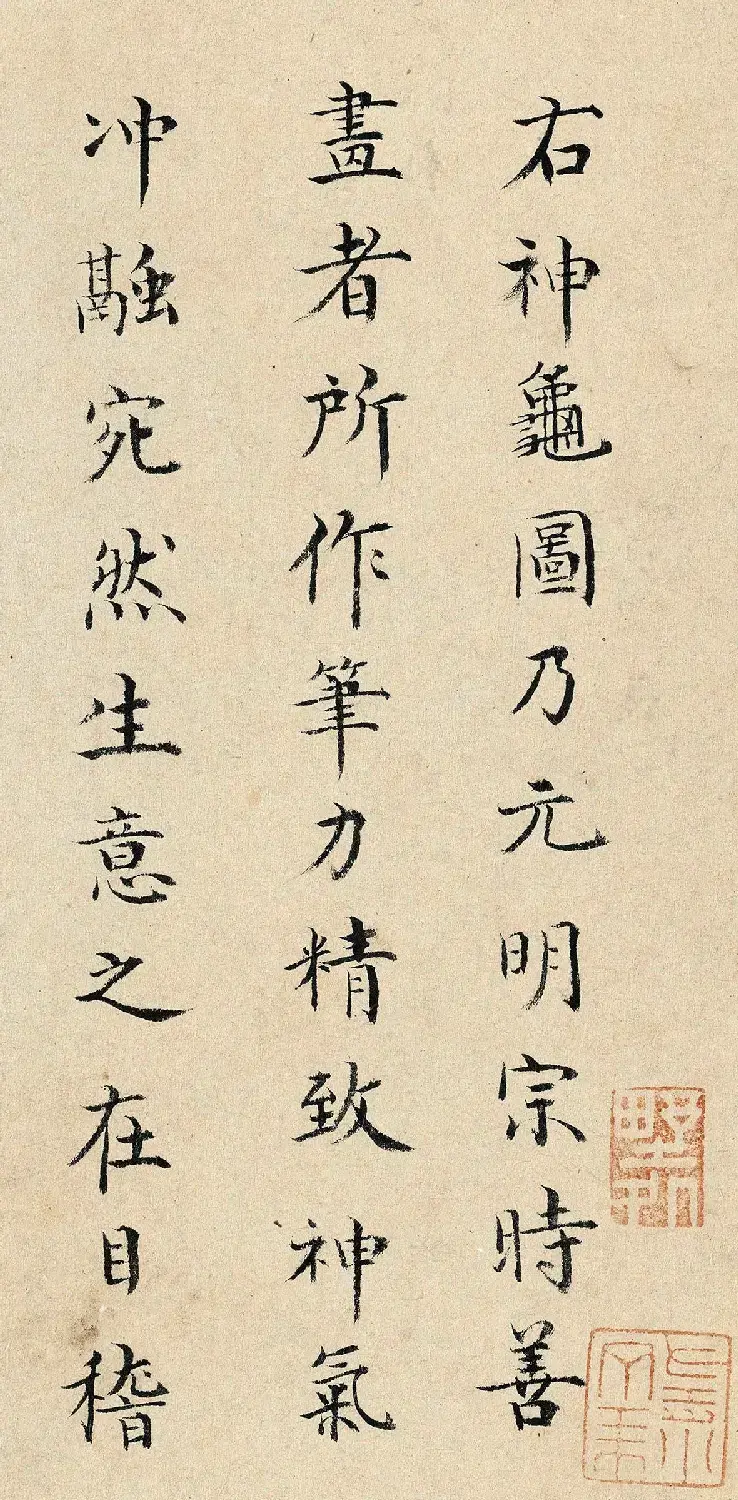 右神龜圖乃元明宗時善
畫者所作筆力精致神氣
冲融宛然生意之在目稽